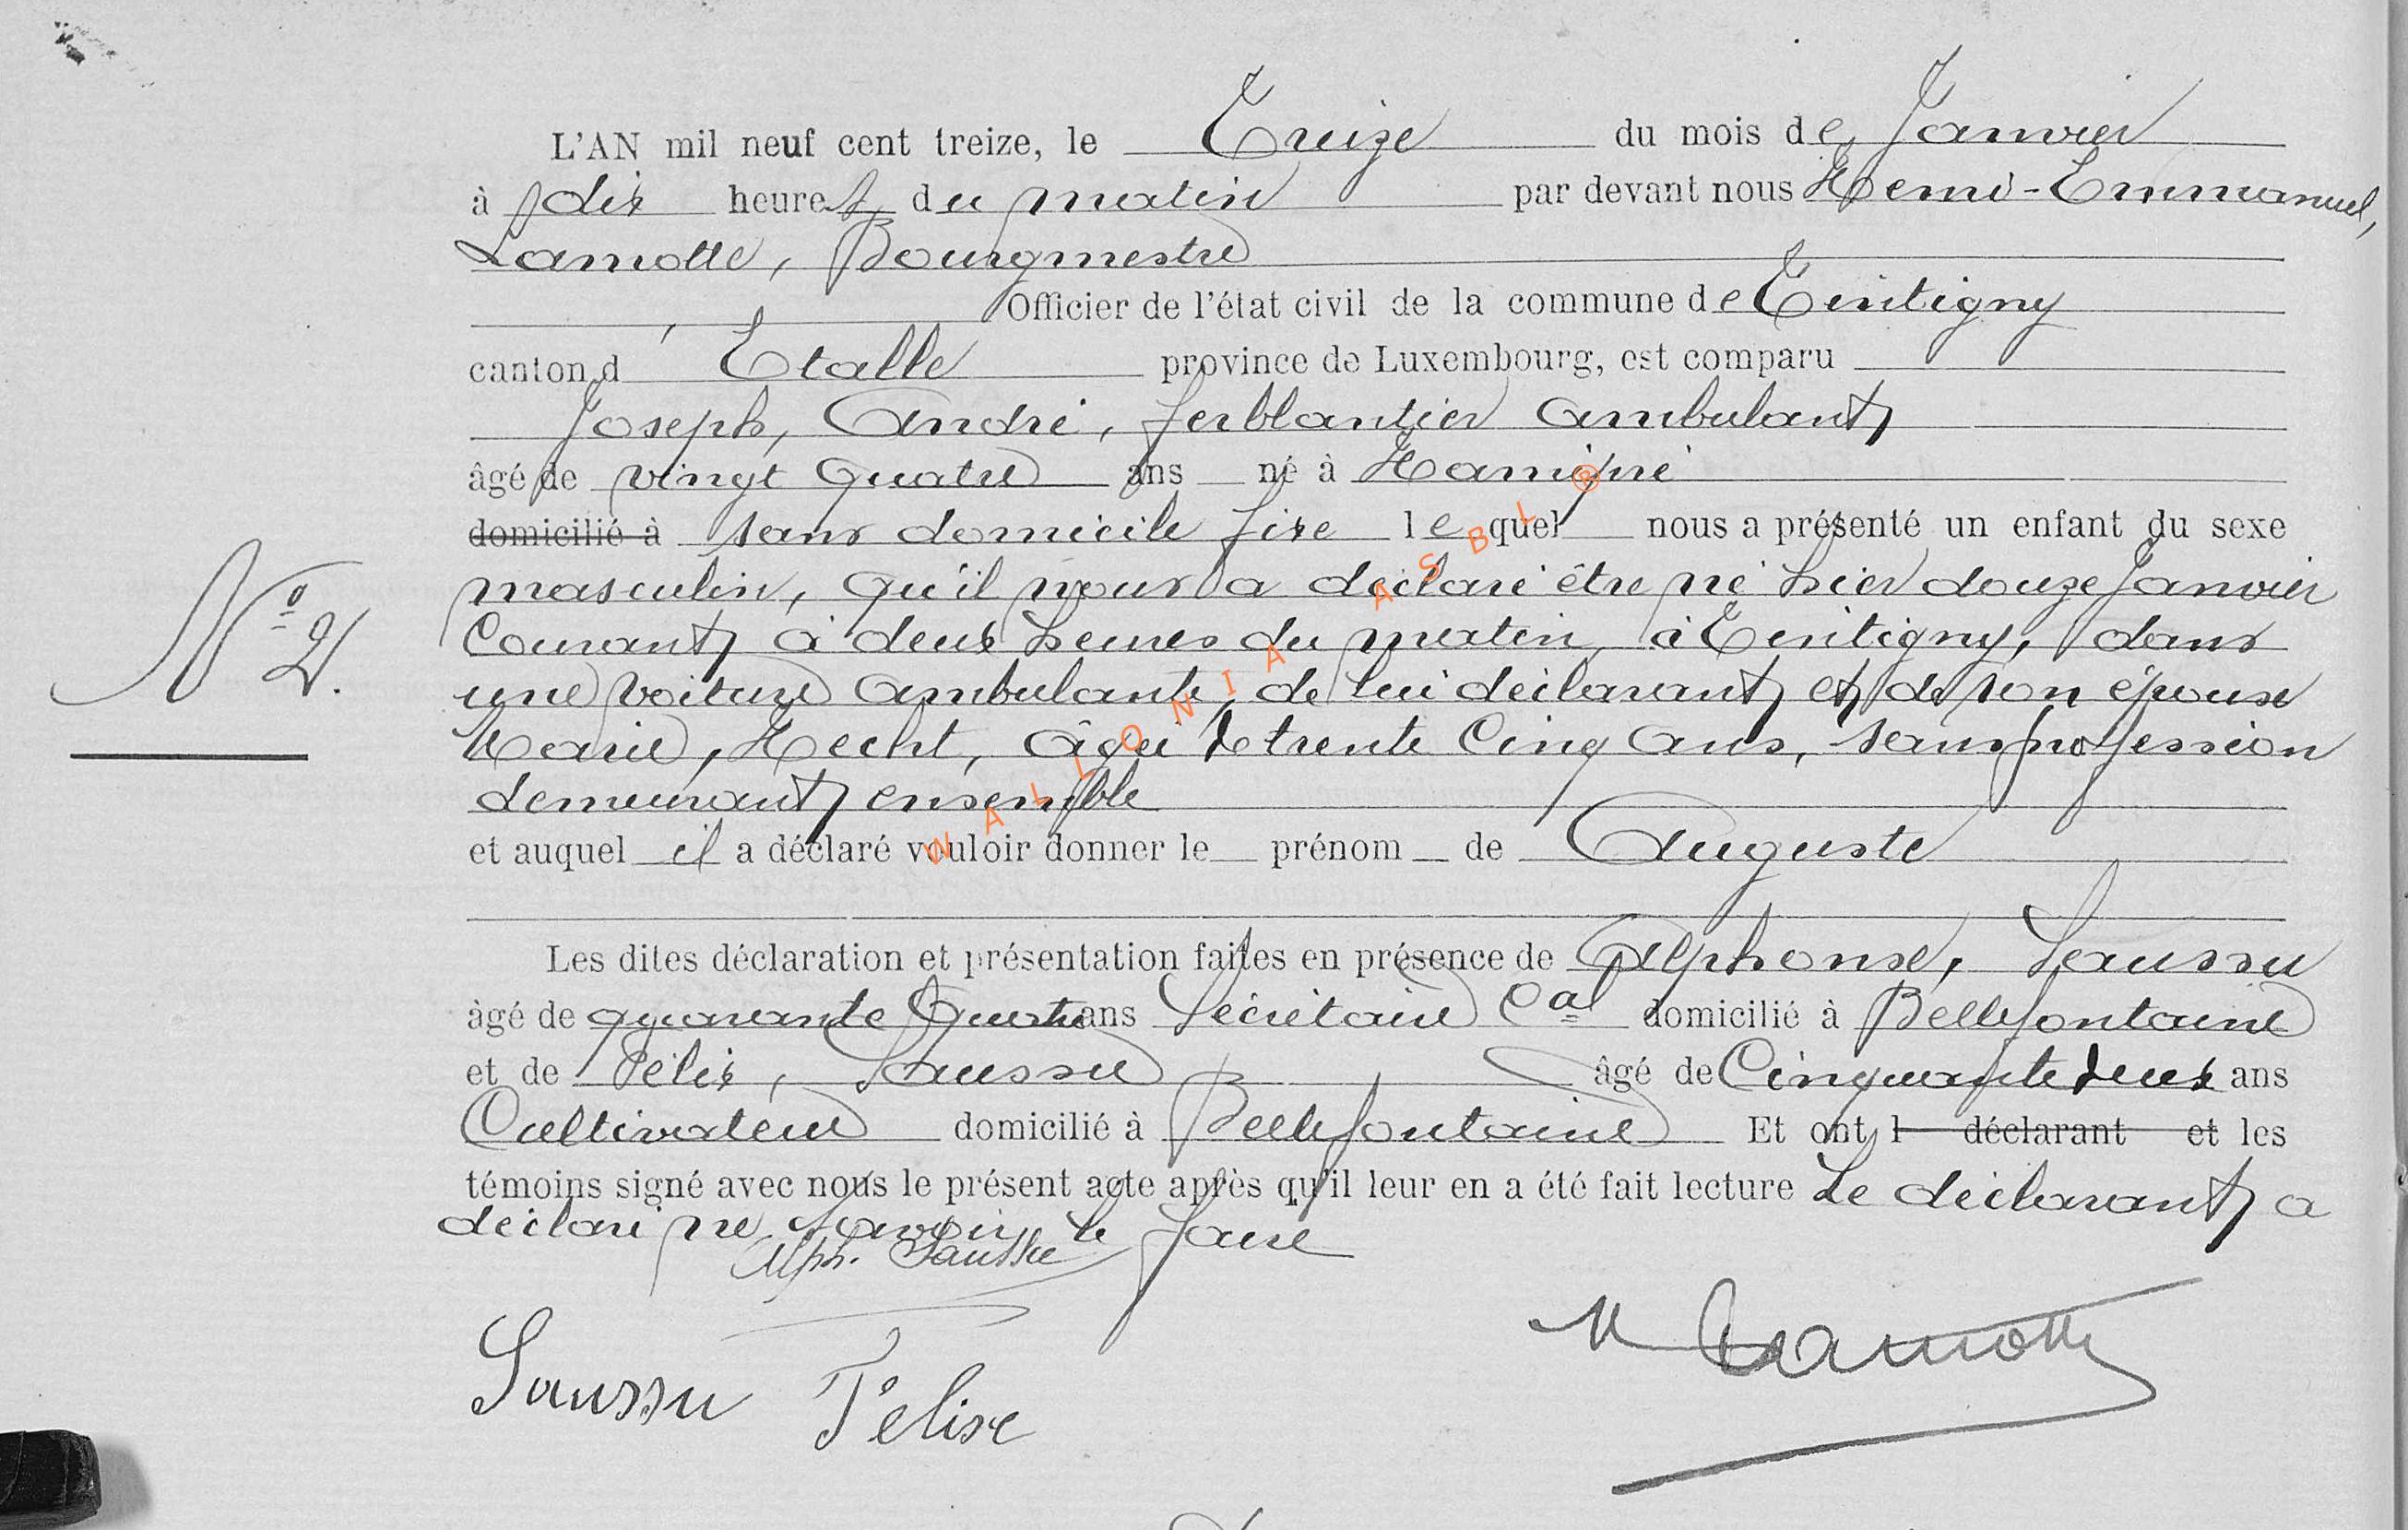 L'AN mil neuf cent treize, le Treize du mois de Janvier
à dix heures du matin par devant nous Henri-Emmanuel,
Lamotte, Bourgmestre
Officier de l'état civil de la commune de Tintigny
canton d'Etalle province de Luxembourg, est comparu
Joseph, André, ferblantier ambulant
âgé de vingt quatre ans né à
domicilié à sans domicile fixe lequel nous a présenté un enfant du sexe
masculin, qu'il nous a déclaré être né hier douze Janvier
Courant à deux heures du matin, à Tintigny, dans
une voiture ambulante, de lui déclarant et de son épouse
Marie, Hecht, âgée de trente Cinq ans, sans profession
demeurant ensemble
N° 2.
et auquel il a déclaré vouloir donner le prénom de Auguste
Les dites déclaration et présentation faites en présence de Alphonse, Saussu
âgé de quarante quatre ans Secrétaire Cal domicilié à Bellefontaine
et de Félix, Saussu âgé de Cinquante deux ans
Cultivateur domicilié à Bellefontaine Et ont l déclarant et les
témoins signé avec nous le présent acte après qu'il leur en a été fait lecture Le déclarant a
déclaré ne savoir le faire
Alph. Saussu
Saussu Félix
H Lamotte
WALLONIA ASBL ®